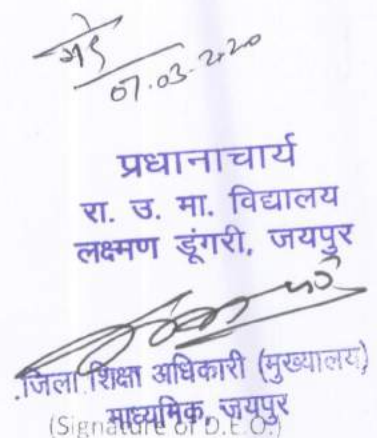 07.03.2020
प्रधानाचार्य
रा. उ. मा. विद्यालय
लक्ष्मण डूंगरी, जयपुर
जिला शिक्षा अधिकारी (मुख्यालय)
माध्यमिक, जयपुर
(Signature of D.E.O.)